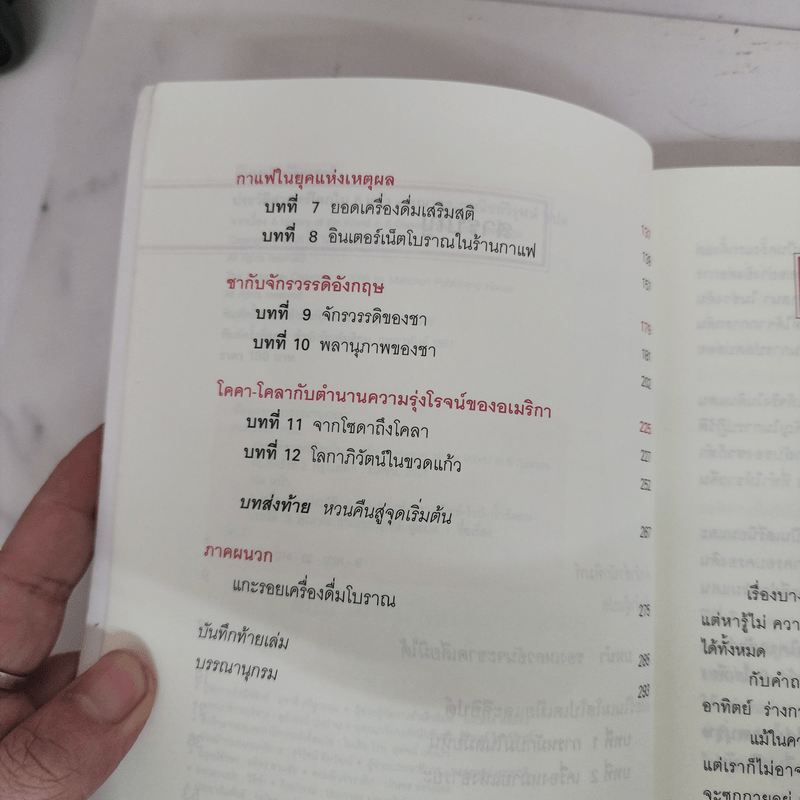 กาแฟในยุคแห่งเหตุผล
บทที่ 7 ยอดเครื่องดื่มเสริมสติ
บทที่ 8 อินเตอร์เน็ตโบราณในร้านกาแฟ 
ชากับจักรวรรดิอังกฤษ
บทที่ 9 จักรวรรดิของชา 179
บทที่ 10 พลานุภาพของชา 181
202
โคคา-โคลากับตำนานความรุ่งโรจน์ของอเมริกา 225
บทที่ 11 จากโซดาถึงโคลา 227
บทที่ 12 โลกาภิวัตน์ในขวดแก้ว 252
บทส่งท้าย หวนคืนสู่จุดเริ่มต้น 267
ภาคผนวก
แกะรอยเครื่องดื่มโบราณ 275
บันทึกท้ายเล่ม 285
บรรณานุกรม 293
เรื่องบาง
แต่หารู้ไม่ ความ
ได้ทั้งหมด
กับคำถ
อาทิตย์ ร่างกา
แม้ในควา
แต่เราก็ไม่อาจ
จะซุกกายอยู่